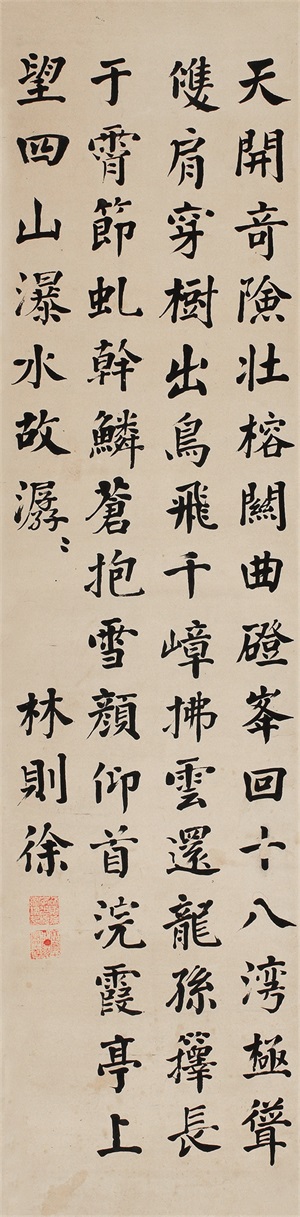 天開奇險壯榕關曲磴峯回十八灣極聳
雙肩穿樹出鳥飛千嶂拂雲還龍孫籜長
于霄節虬幹鱗蒼抱雪顏仰首浣霞亭上
望四山瀑水故潺〻
林則徐